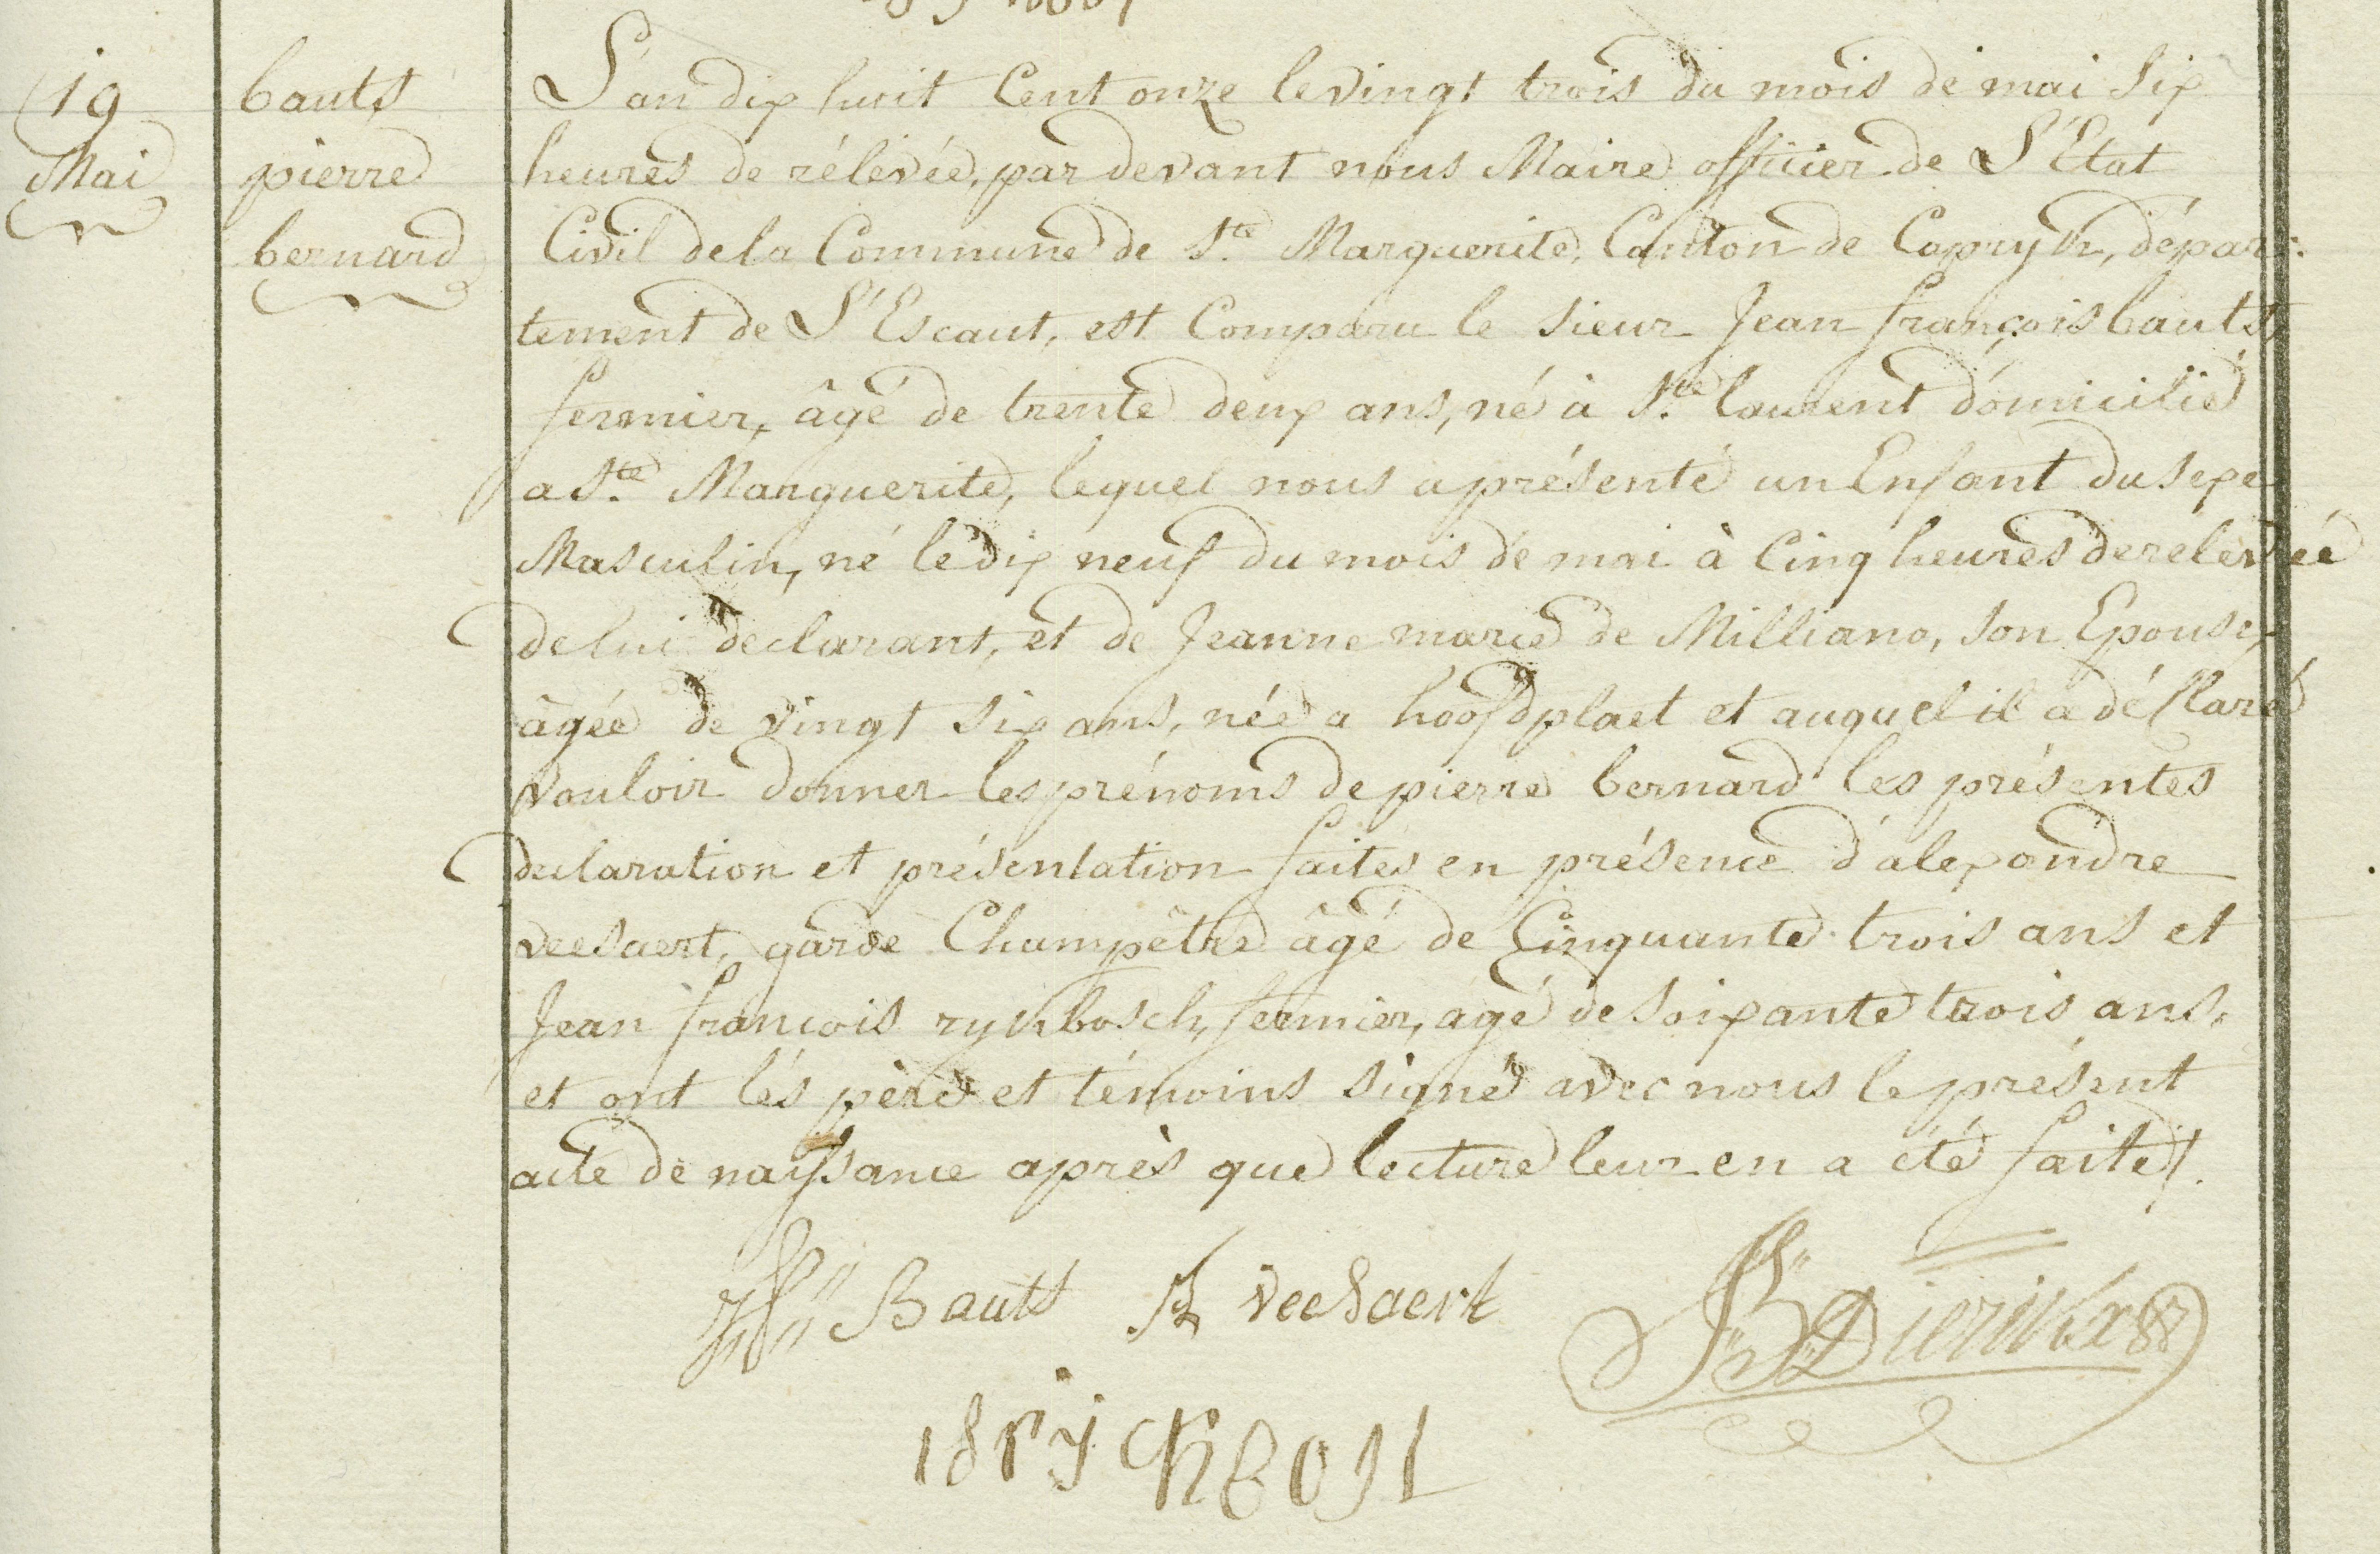 19
Mai
bauts
pierre
bernard
L'an dix huit Cent onze le vingt trois du mois de mai Six
heures de rélévée, par devant nous Maire officier de L'Etat
Civil de la Commune de Ste Marguerite, Canton de Capryk, dépar:
tement de L'Escaut, est Comparu le sieur Jean françois bauts,
fermier, âgé de trente deux ans, né à Ste laurent domicilié
a Ste Marguerite, lequel nous a présenté un Enfant du sexe
Masculin, né le dix neuf du mois de mai à Cinq heures de relevéé
de lui declarant, et de Jeanne marie de Milliano, son Epouse,
âgée de vingt six ans, née a hoofdplaet et auquel il a déclaré
vouloir donner les prénoms de pierre bernard les présentes
declaration et présentation faites en présence d'alexandre
veesaert, garde Champêtre âgé de Cinquante trois ans et
Jean francois rykbosch, fermier, agé de soixante trois ans,
et ont lés père et témoins signé avec nous le présent
acte de naissance après que lecture leur en a été faite.
Bauts
veesaert
Dierikx